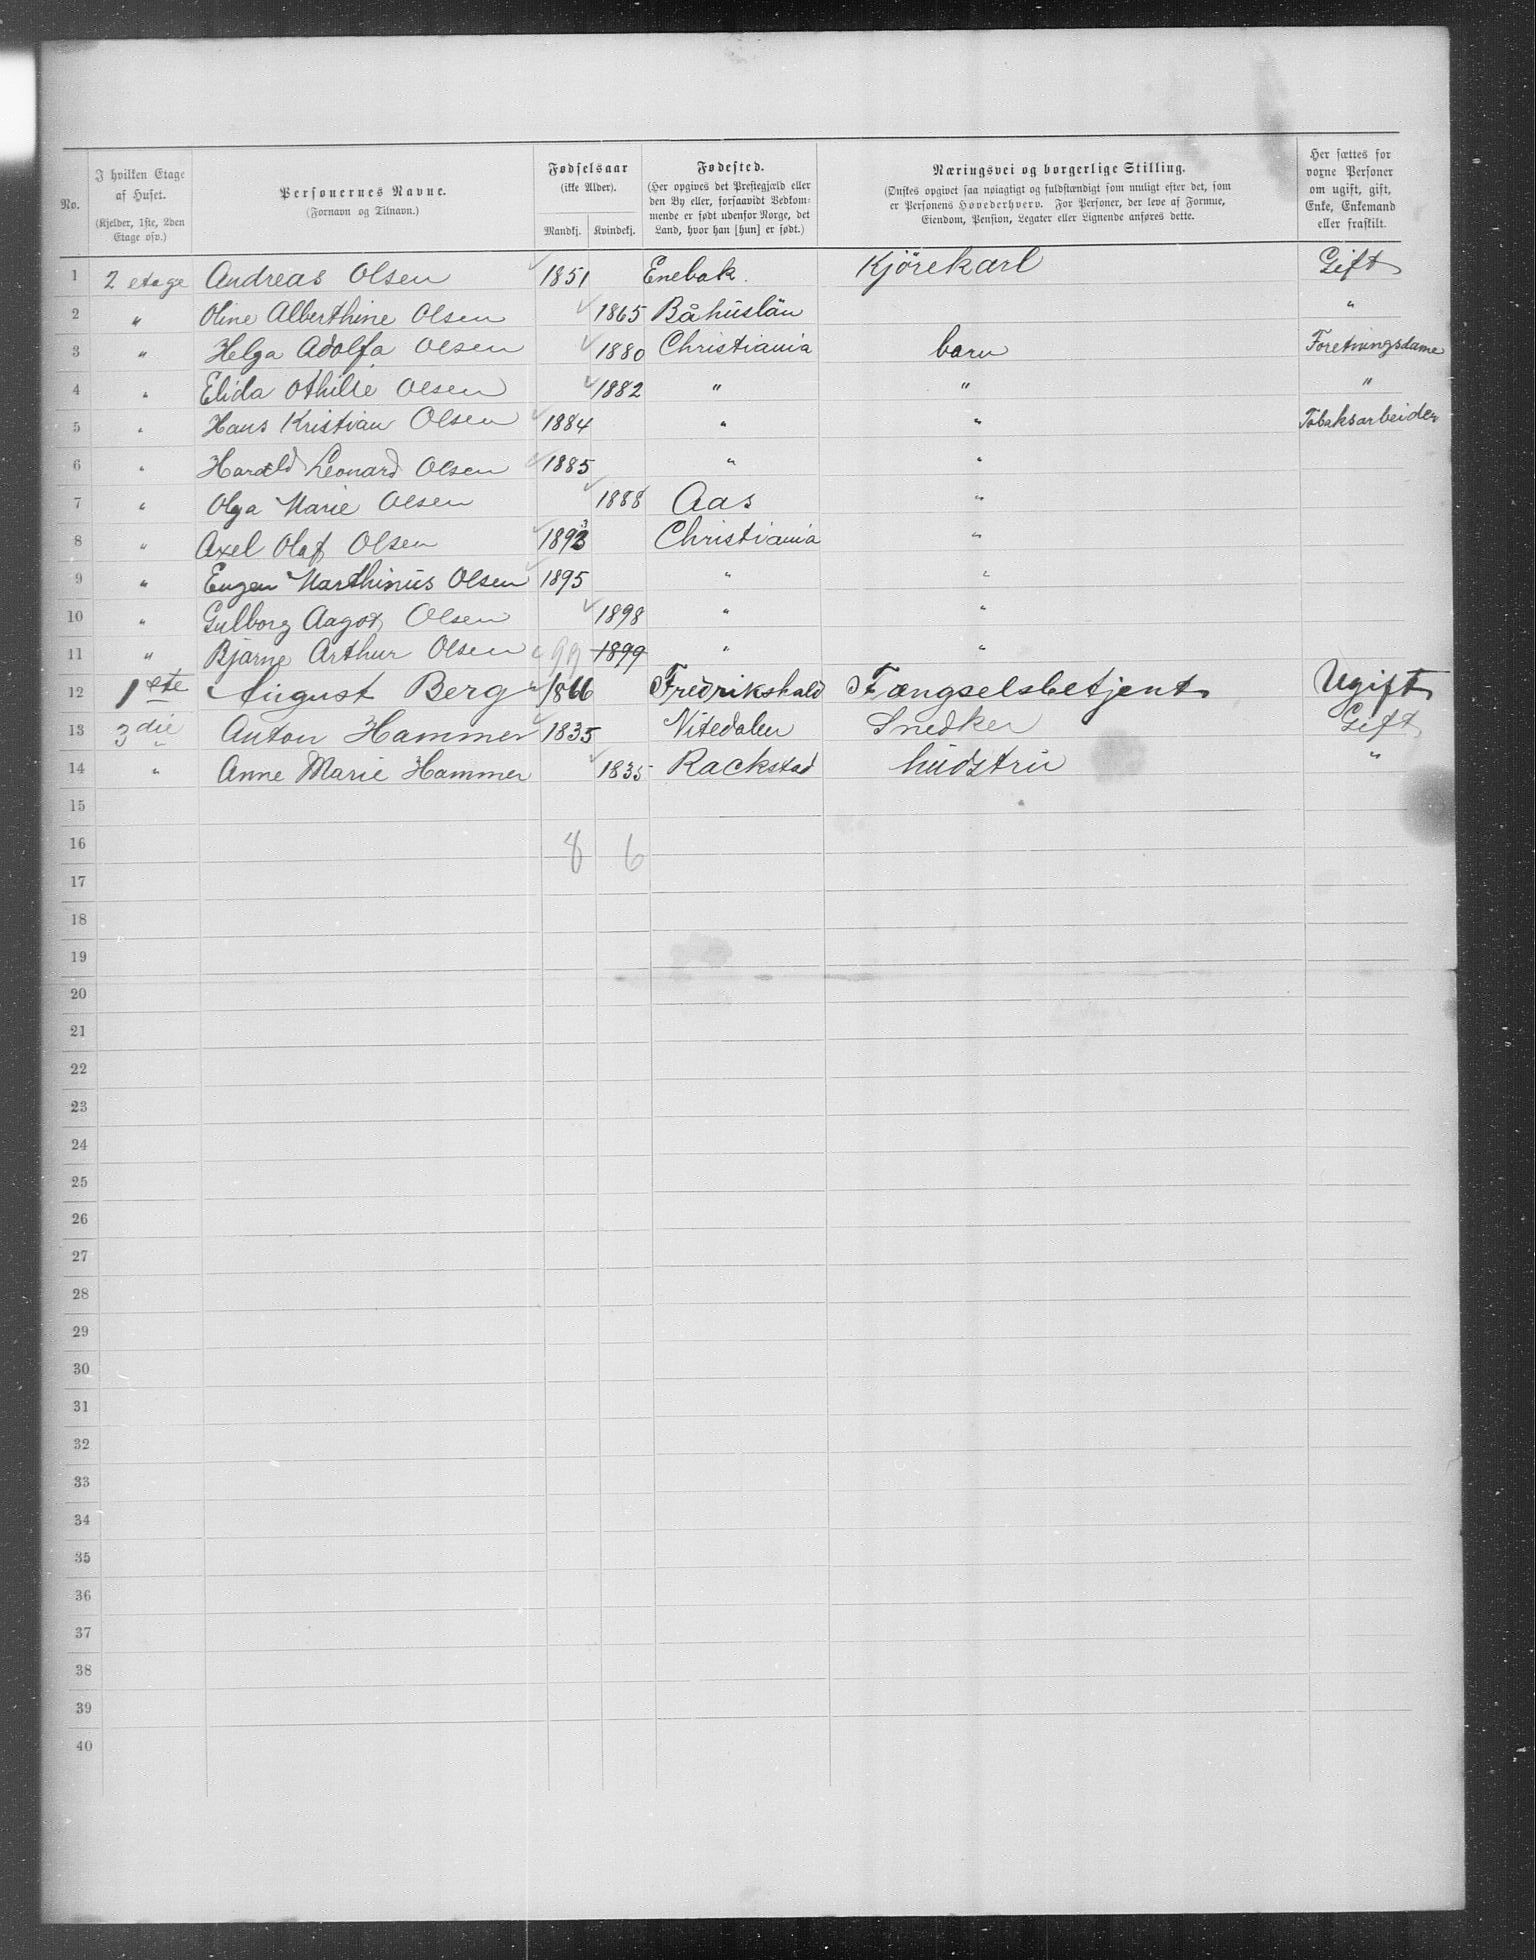 No. | I hvilken Etage af Huset. (Kjelder, 1ste, 2den Etage osv.) | Personernes Navne. (Fornavn og Tilnavn.) | Fødselsaar (ikke Alder). Mandkj. | Kvindekj. | Fødested. (Her opgives det Prestegjæld eller den By eller, forsaavidt Vedkommende er født udenfor Norge, det Land, hvor han [hun] er født.) | Næringsvei og borgerlige Stilling. (Ønskes opgivet saa nøiagtigt og fuldstændigt som muligt efter det, som er Personens Hovederhverv. For Personer, der leve af Formue, Eiendom, Pension, Legater eller Lignende anføres dette.) | Her sættes for voxne Personer om ugift, gift, Enke, Enkemand eller fraskilt.
1 | 2 etage | Andreas Olsen | 1851 | | Enebak. | Kjörekarl | Gift
2 | " | Oline Alberthine Olsen | | 1865 | Båhuslän | | "
3 | " | Helga Adolfa Olsen | | 1880 | Christiania | barn | Foretningsdame
4 | " | Elida Othilie Olsen | | 1882 | " | " | "
5 | " | Hans Kristian Olsen | 1884 | | " | " | Tobaksarbeider
6 | " | Harald Leonard Olsen | 1885 | | " | "
7 | " | Olga Marie Olsen | | 1888 | Aas | "
8 | " | Axel Olaf Olsen | 1893 | | Christiania | "
9 | " | Eugen Marthinus Olsen | 1895 | | " | "
10 | " | Gulborg Aagot Olsen | | 1898 | " | "
11 | " | Bjarne Arthur Olsen | 99 | 1899 | " | "
12 | 1ste | August Berg | 1866 | | Fredrikshald | Fængselsbetjent | Ugift
13 | 3die | Anton Hammer | 1835 | | Nitedalen | Snedker | Gift
14 | " | Anne Marie Hammer | | 1835 | Rackstad | hudstru | "
15
16 | | | 8 | 6
17
18
19
20
21
22
23
24
25
26
27
28
29
30
31
32
33
34
35
36
37
38
39
40